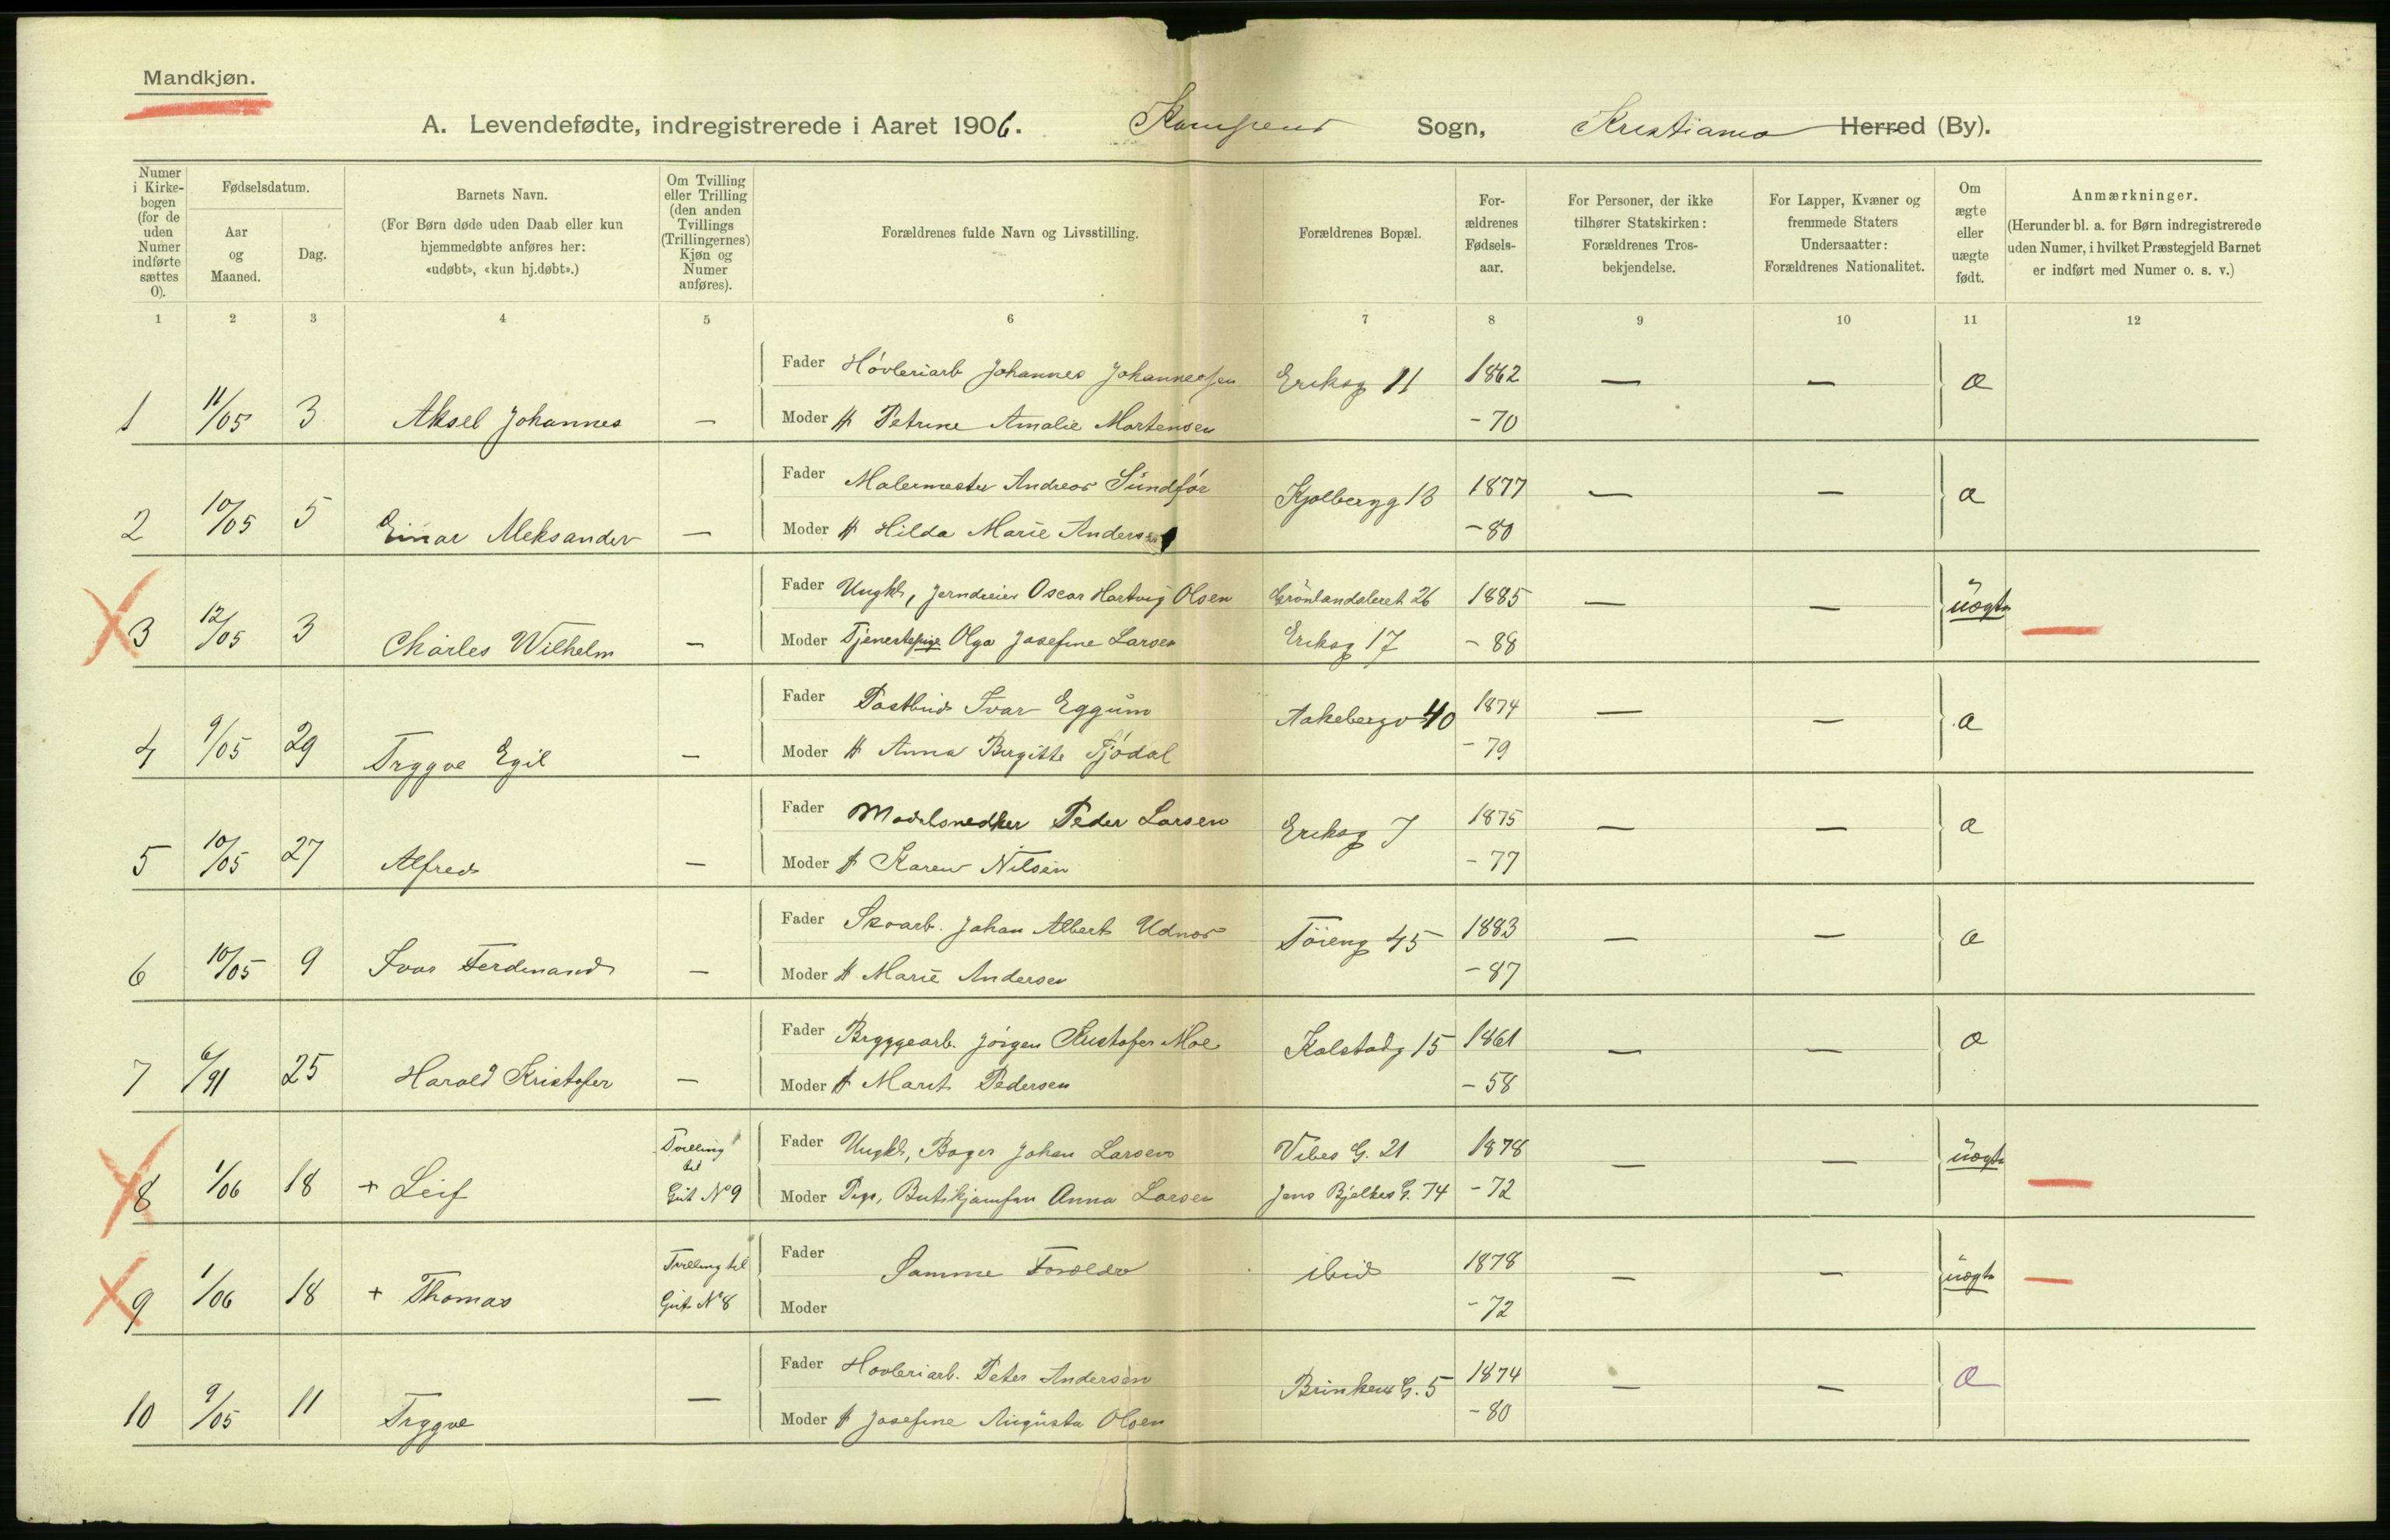 Mandkjøn.
A. Levendefødte, indregistrerede i Aaret 1906. Kampens Sogn, Kristiania Herred (By).
Numer i Kirkebogen (for de uden Numer indførte sættes 0).
Fødselsdatum.
Aar og Maaned.
Dag.
Barnets Navn.
(For Børn døde uden Daab eller kun hjemmedøbte anføres her: «udøbt», «kun hj.døbt».)
Om Tvilling eller Trilling (den anden Tvillings (Trillingernes) Kjøn og Numer anføres).
Forældrenes fulde Navn og Livsstilling.
Forældrenes Bopæl.
Forældrenes Fødselsaar.
For Personer, der ikke tilhører Statskirken: Forældrenes Trosbekjendelse.
For Lapper, Kvæner og fremmede Staters Undersaatter: Forældrenes Nationalitet.
Om ægte eller uægte født.
Anmærkninger.
(Herunder bl. a. for Børn indregistrerede uden Numer, i hvilket Præstegjeld Barnet er indført med Numer o. s. v.)
1 2 3 4 5 6 7 8 9 10 11 12
Fader Høvleriarb Johannes Johannessen Eriksg 11 1862 — — æ
1 11/05 3 Aksel Johannes — Moder H Petrine Amalie Martensen - 70
Fader Malermester Andreas Sundför Kjølbergg 13 1877 — — æ
2 10/05 5 Einar Aleksander — Moder H Hilda Marie Andersen - 80
Fader Ungk, Jerndreier Oscar Hartvig Olsen Grönlandsleret 26 1885 — — uægte
3 12/05 3 Charles Wilhelm — Moder Tjenestepige Olga Josefine Larsen Eriksg 17 - 88
Fader Postbud Ivar Eggum Aakebergv 40 1874 — — æ
4 9/05 29 Trygve Egil — Moder H Anna Birgitte Tjödal - 79
Fader Modelsnedker Peder Larsen Eriksg 7 1875 — — æ
5 10/05 27 Alfred — Moder H Karen Nilsen - 77
Fader Skoarb. Johan Albert Udnes Töieng 45 1883 — — æ
6 10/05 9 Ivar Ferdinand — Moder H Marie Andersen - 87
Fader Bryggearb. Jörgen Kristofer Moe Kalstadg 15 1861 — — æ
7 6/91 25 Harald Kristofer — Moder H Marit Pedersen - 58
Tvilling til Fader Ungk, Bager Johan Larsen Vibes G. 21 1878 — — uægte
8 1/06 18 + Leif Gut No 9 Moder Pige, Anna Larsen Jens Bjelkes G. 74 - 72
Tvilling til Fader Samme Forældre ibid 1878 — — uægte
9 1/06 18 + Thomas Gut No 8 Moder - 72
Fader Høvleriarb. Peter Andersen Brinkens G. 5 1874 — — æ
10 9/05 11 Trygve — Moder H Josefine Augusta Olsen - 80